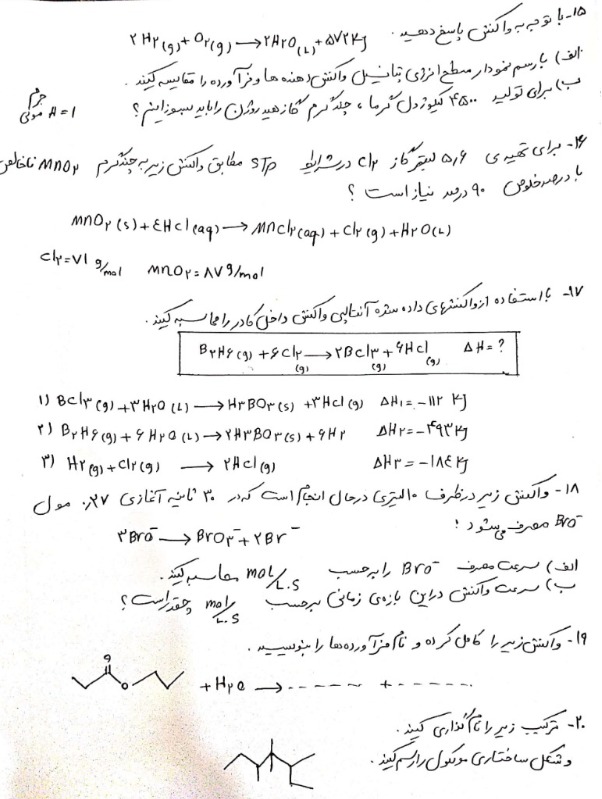 ۱۵- با توجه به واکنش پاسخ دهید. ۲H۲(g) + O۲(g) → ۲H۲O(L) + ۵۷۲ KJ
الف) با رسم نمودار سطح انرژی پتانسیل واکنش دهنده ها و فرآورده را مقایسه کنید.
ب) برای تولید ۴۵۰۰ کیلوژول گرما، چند گرم گاز هیدروژن را باید بسوزانیم؟ H = ۱ جرم مولی
۱۶- برای تهیه ی ۵,۶ لیتر گاز Cl۲ در شرایط STP مطابق واکنش زیر به چند گرم MnO۲ ناخالص
با درصد خلوص ۹۰ درصد نیاز است؟
MnO۲(s) + ٤HCl(aq) → MnCl۲(aq) + Cl۲(g) + H۲O(L)
Cl۲ = ۷۱ g/mol MnO۲ = ۸۷ g/mol
۱۷- با استفاده از واکنشهای داده شده آنتالپی واکنش داخل کادر را محاسبه کنید.
B۲H۶(g) + ۶Cl۲(g) → ۲BCl۳(g) + ۶HCl(g) ΔH = ?
۱) BCl۳(g) + ۳H۲O(L) → H۳BO۳(s) + ۳HCl(g) ΔH۱ = -۱۱۲ KJ
۲) B۲H۶(g) + ۶H۲O(L) → ۲H۳BO۳(s) + ۶H۲ ΔH۲ = -۴۹۳ KJ
۳) H۲(g) + Cl۲(g) → ۲HCl(g) ΔH۳ = -۱۸٤ KJ
۱۸- واکنش زیر در ظرف ۱۰ لیتری در حال انجام است که در ۳۰ ثانیه آغازی ۰,۲۷ مول
BrO⁻ مصرف می شود؛
۳BrO⁻ → BrO۳⁻ + ۲Br⁻
الف) سرعت مصرف BrO⁻ را بر حسب mol/L.s محاسبه کنید.
ب) سرعت واکنش در این بازه ی زمانی بر حسب mol/L.s چقدر است؟
۱۹- واکنش زیر را کامل کرده و نام فرآورده ها را بنویسید.
O O + H۲O → ------ + ------
۲۰- ترکیب زیر را نام گذاری کنید.
و شکل ساختاری مولکول را رسم کنید.